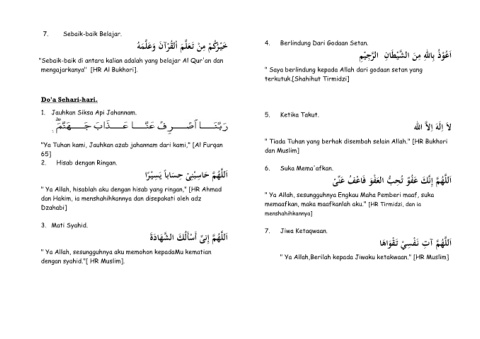 7. Sebaik-baik Belajar.
خَيْرُكُمْ مِنْ تَعَلَّمَ الْقُرْآنَ وَعَلَّمَهُ
"Sebaik-baik di antara kalian adalah yang belajar Al Qur'an dan
mengajarkanya" [HR Al Bukhori].
Do'a Sehari-hari.
1. Jauhkan Siksa Api Jahannam.
رَبَّنَا اصْرِفْ عَنَّا عَذَابَ جَهَنَّمَ
"Ya Tuhan kami, Jauhkan azab jahannam dari kami," [Al Furqan
65]
2. Hisab dengan Ringan.
اَللَّهُمَّ حَاسِبْنِيْ حِسَاباً يَسِيْرًا
" Ya Allah, hisablah aku dengan hisab yang ringan," [HR Ahmad
dan Hakim, ia menshahihkannya dan disepakati oleh adz
Dzahabi]
3. Mati Syahid.
اَللَّهُمَّ إِنِّىْ أَسْأَلُكَ الشَّهَادَةَ
" Ya Allah, sesungguhnya aku memohon kepadaMu kematian
dengan syahid."[ HR Muslim].
4. Berlindung Dari Godaan Setan.
اَعُوْذُ بِاللهِ مِنَ الشَّيْطَانِ الرَّجِيْمِ
" Saya berlindung kepada Allah dari godaan setan yang
terkutuk.[Shahihut Tirmidzi]
5. Ketika Takut.
لاَ إِلَهَ إِلاَّ الله
" Tiada Tuhan yang berhak disembah selain Allah." [HR Bukhori
dan Muslim]
6. Suka Mema'afkan.
اَللَّهُمَّ إِنَّكَ عَفُوٌّ تُحِبُّ الْعَفْوَ فَاعْفُ عَنِّىْ
" Ya Allah, sesungguhnya Engkau Maha Pemberi maaf, suka
memaafkan, maka maafkanlah aku." [HR Tirmidzi, dan ia
menshahihkannya]
7. Jiwa Ketaqwaan.
اَللَّهُمَّ آتِ نَفْسِيْ تَقْوَاهَا
" Ya Allah,Berilah kepada Jiwaku ketakwaan." [HR Muslim]